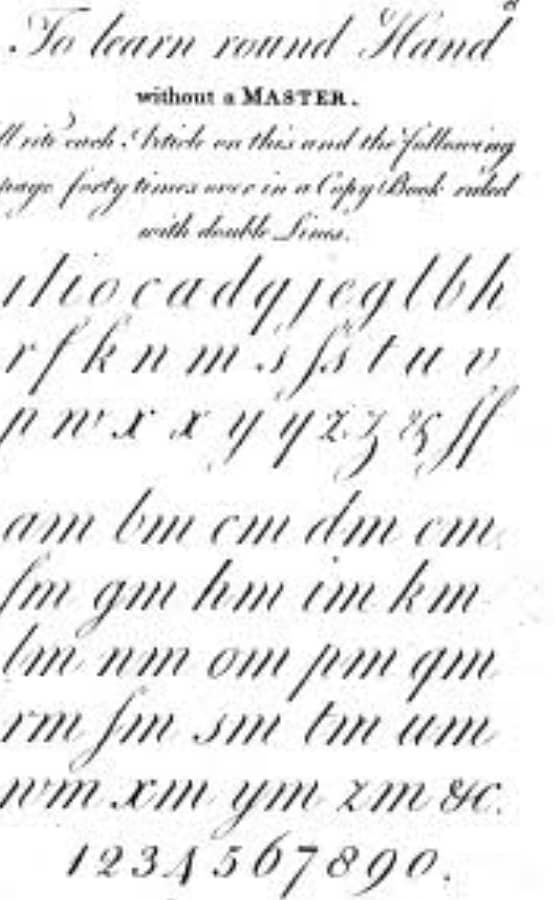 To learn round Hand
without a MASTER.
Write each Article on this and the following
page forty times over in a Copy Book ruled
with double Lines.
ı l i o c a d q j e g l b h
r f k n m s ſs t u v
p w x x y y z z & ſſ
am bm cm dm em
fm gm hm im km
lm nm om pm qm
rm ſm sm tm um
wm xm ym zm &c.
1 2 3 4 5 6 7 8 9 0.